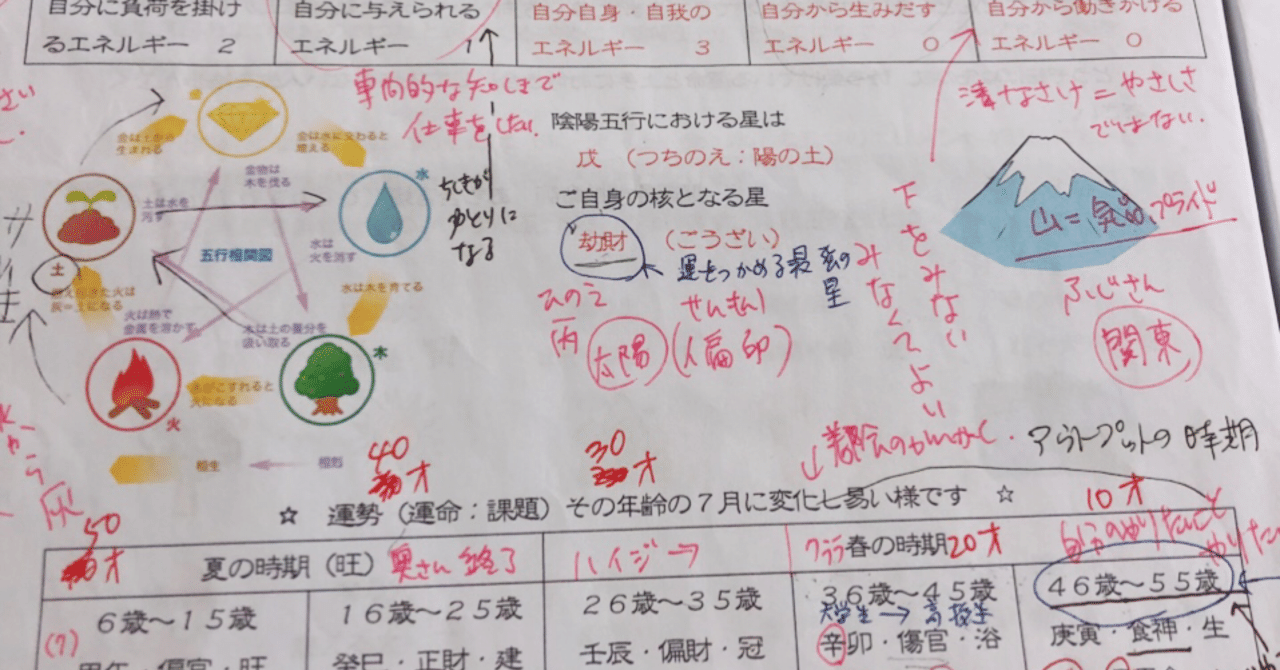 自分に負荷を掛け
るエネルギー 2
自分に与えられる
エネルギー 1
自分自身・自我の
エネルギー 3
自分から生みだす
エネルギー 0
自分から働きかける
エネルギー 0
専門的な知しきで
仕事をしたい
ちしきが
ゆとりに
なる
金
金は土から
生まれる
金は水に交わると
増える
金物は
木を伐る
土は水を
汚す
水
水は
火を消す
五行相関図
土
灰=土になる
水は木を育てる
火は熱で
金属を溶かす
木は土の養分を
吸い取る
木
木がこすれると
火になる
火
相生
相剋
陰陽五行における星は
戊 (つちのえ:陽の土)
ご自身の核となる星
劫財 (ごうざい)
運をつかめる最強の
星
ひのえ
丙
太陽
偏印
下をみない
みなくてよい
なさけ=やさしさ
ではない.
山=気品
プライド
ふじさん
関東
アウトプットの時期
40
才
30
才
☆ 運勢(運命:課題)その年齢の7月に変化し易い様です ☆
10才
50
才
夏の時期(旺)
奥さん終了
ハイジ→
クララ
春の時期
20才
自分のやりたいこと
やりた
6歳~15歳
16歳~25歳
26歳~35歳
36歳~45歳
46歳~55歳
大学生→高校生
(7)
甲午・傷官・旺
癸巳・正財・建
壬辰・偏財・冠
辛卯・傷官・浴
庚寅・食神・生